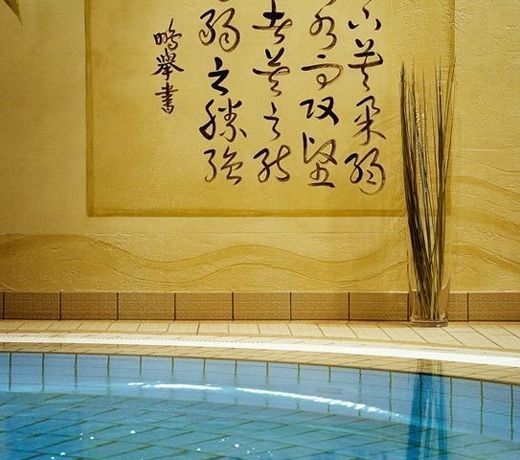 下莫柔弱
水而攻堅
者莫之能
弱之勝強
鵬舉書